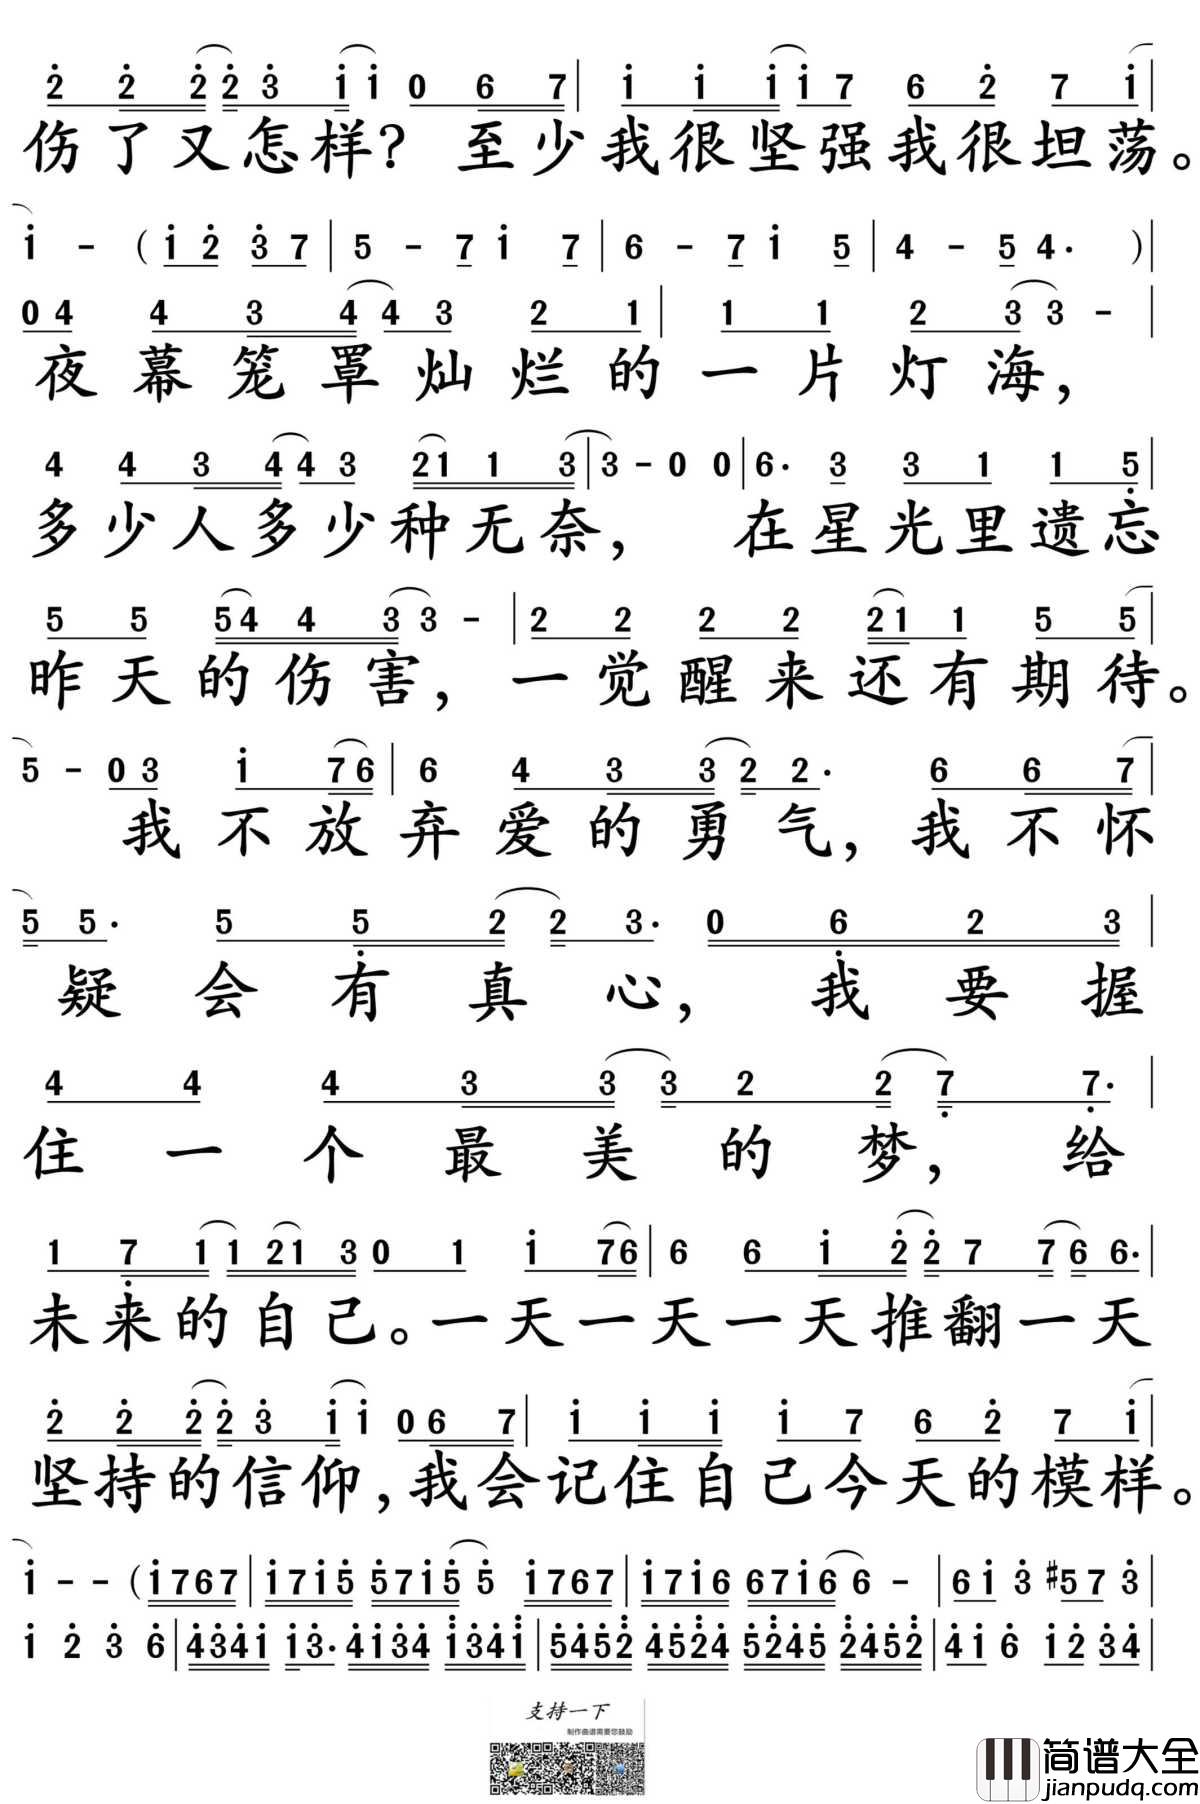 2̇ 2̇ 2̇ 2̇ 3̇ 1̇ 1̇ 0 6 7 | 1̇ 1̇ 1̇ 1̇ 7 6 2̇ 7 1̇ |
伤了又怎样？ 至少我很坚强我很坦荡。
1̇ - ( 1̇ 2̇ 3̇ 7 | 5 - 7 1̇ 7 | 6 - 7 1̇ 5 | 4 - 5 4· ) |
0 4 4 3 4 4 3 2 1 | 1 1 2 3 3 - |
夜幕笼罩灿烂的一片灯海，
4 4 3 4 4 3 2 1 1 3 | 3 - 0 0 | 6· 3 3 1 1 5̣ |
多少人多少种无奈， 在星光里遗忘
5 5 5 4 4 3 3 - | 2 2 2 2 2 1 1 5 5 |
昨天的伤害，一觉醒来还有期待。
5 - 0 3 1̇ 7 6 | 6 4 3 3 2 2· 6 6 7 |
我不放弃爱的勇气，我不怀
5 5· 5 5̣ 2 2 3· 0 6̣ 2 3 |
疑会有真心，我要握
4 4 4 3 3 3 2 2 7̣ 7̣· |
住一个最美的梦，给
1 7̣ 1 1 2 1 3 0 1 1̇ 7 6 | 6 6 1̇ 2̇ 2̇ 7 7 6 6· |
未来的自己。一天一天一天推翻一天
2̇ 2̇ 2̇ 2̇ 3̇ 1̇ 1̇ 0 6 7 | 1̇ 1̇ 1̇ 1̇ 7 6 2̇ 7 1̇ |
坚持的信仰，我会记住自己今天的模样。
1̇ - - ( 1̇ 7 6 7 | 1̇ 7 1̇ 5̇ 5̇ 7 1̇ 5̇ 5̇ 1̇ 7 6 7 | 1̇ 7 1̇ 6 6 7 1̇ 6 6 - | 6 1̇ 3̇ #5 7 3̇ |
1̇ 2̇ 3̇ 6̇ | 4̇ 3̇ 4̇ 1̇ 1̇ 3̇· 4̇ 1̇ 3̇ 4̇ 1̇ 3̇ 4̇ 1̇ | 5̇ 4̇ 5̇ 2̇ 4̇ 5̇ 2̇ 4̇ 5̇ 2̇ 4̇ 5̇ 2̇ 4̇ 5̇ 2̇ | 4̇ 1̇ 6̇ 1̇ 2̇ 3̇ 4̇ |
支持一下
制作曲谱需要您鼓励
简谱大全
jianpudq.com